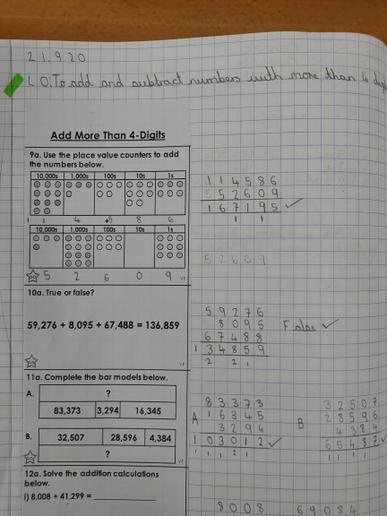 21.9.20
LO: To add and subtract numbers with more than 4 digi
Add More Than 4-Digits
9a. Use the place value counters to add
the numbers below.
10,000s 1,000s 100s 10s 1s
1 1 4 5 8 6
10,000s 1,000s 100s 10s 1s
5 2 6 0 9
114586
52609
167195 ✓
1 1
52609
10a. True or false?
59,276 + 8,095 + 67,488 = 136,859
59276
8095
67488
134859
2 2 1
False ✓
11a. Complete the bar models below.
A.
?
83,373 3,294 16,345
B.
32,507 28,596 4,384
?
A
83373
16345
3294
103012 ✓
1 1 1 2 1
B
32507
28596
4384
65487 ✓
1 1 1 1
12a. Solve the addition calculations
below.
i) 8,008 + 41,299 = 
8008
69084